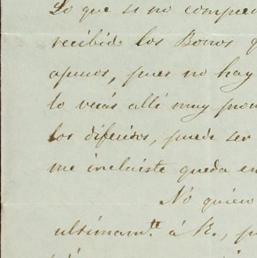 Lo que si no compren
recibido los Bonos q
apuros, pues no hay
lo verás allí muy pron
los diferidos, puede ser
me incluiste queda en
No quiero
ultimamte. á R., p